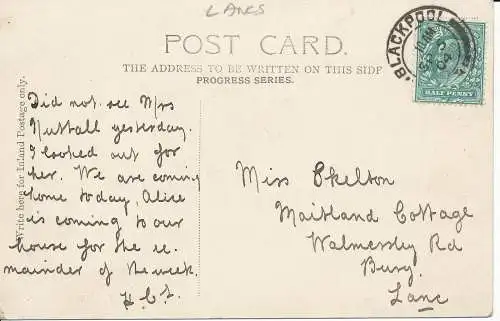 LANCS
POST CARD.
THE ADDRESS TO BE WRITTEN ON THIS SIDE
PROGRESS SERIES.
BLACKPOOL
HALF PENNY
Write here for Inland Postage only.
Did not see Mrs
Nuttall yesterday.
I looked out for
her. We are coming
home today, Alice
is coming to our
house for the re-
mainder of the week.
Miss Skelton
Maitland Cottage
Walmersley Rd
Bury.
Lanc